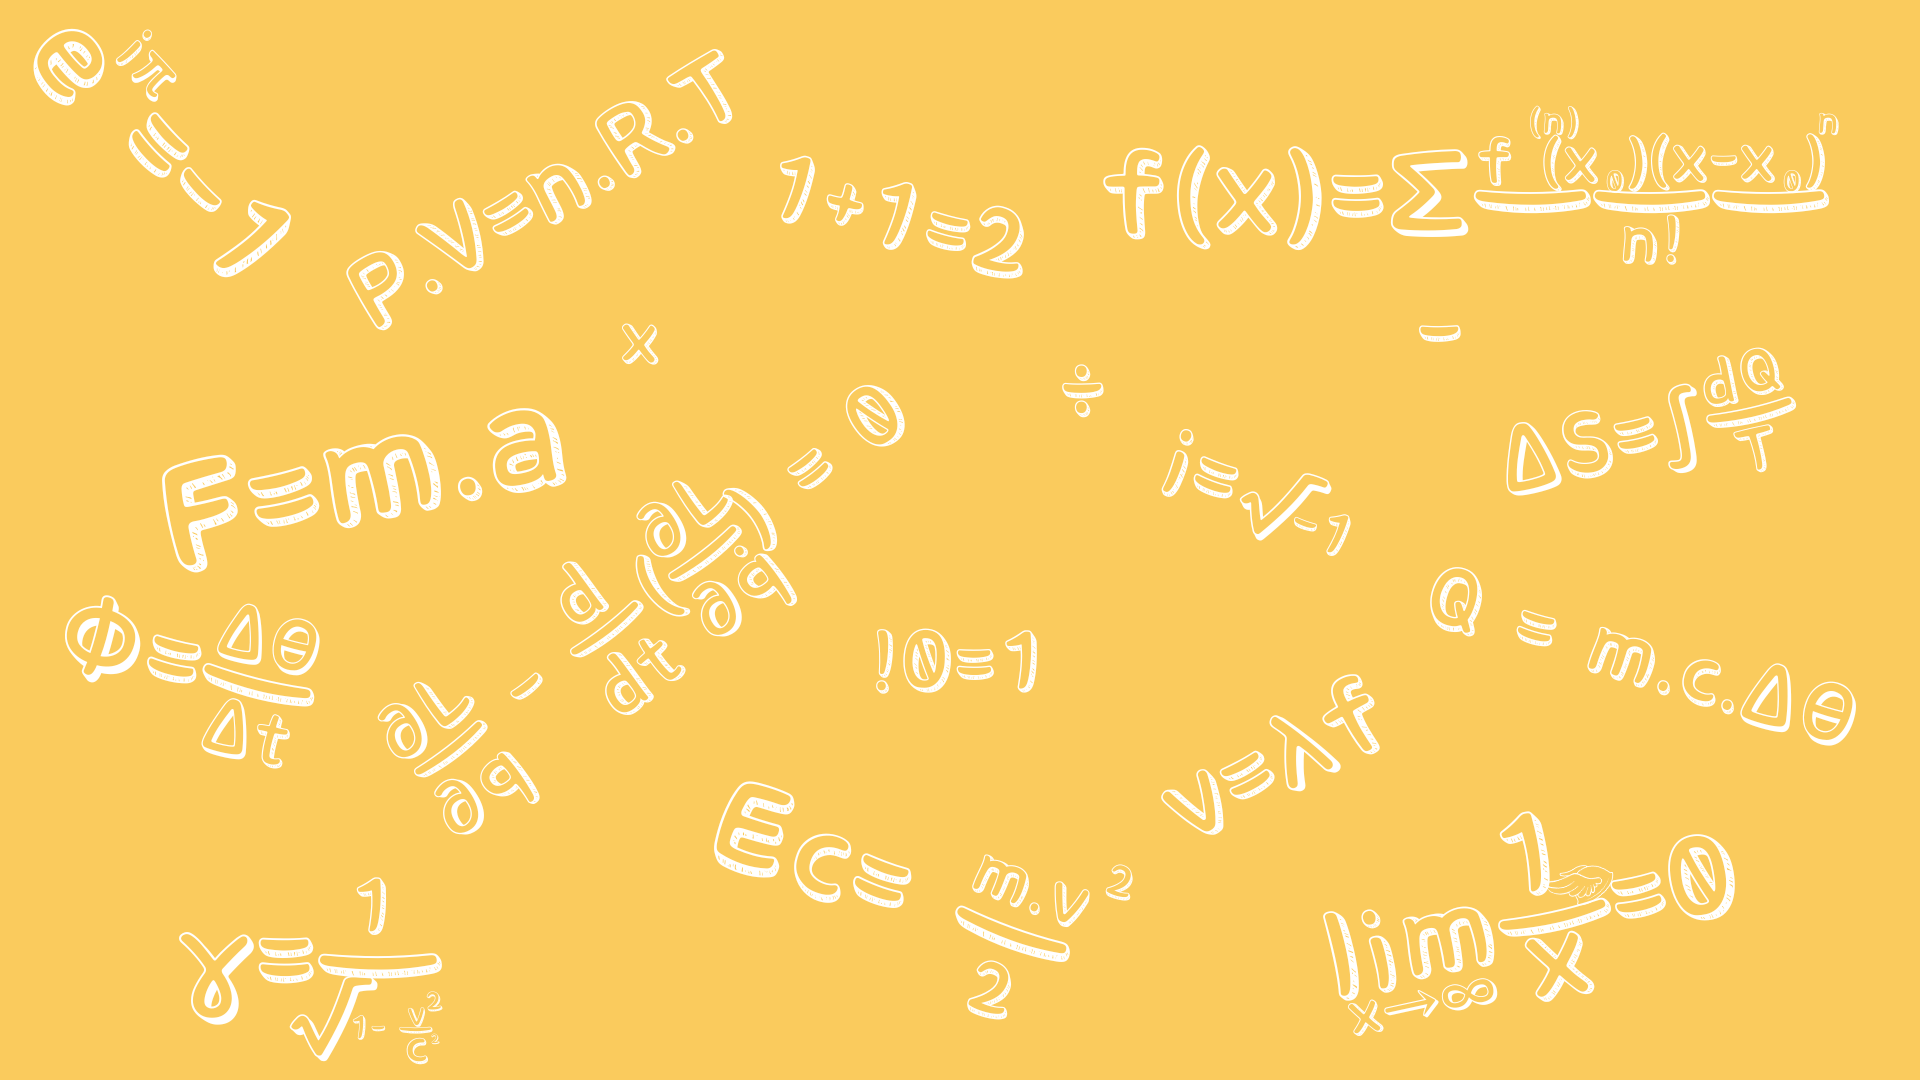 e^{iπ} = -1
P.V=n.R.T
1+1=2
f(x)=Σ f^{(n)}(x₀)(x-x₀)^n / n!
x
÷
-
F=m.a
∂L/∂q - d/dt (∂L/∂q̇) = 0
i=√-1
ΔS=∫dQ/T
Φ=Δθ/Δt
!0=1
Q = m.c.Δθ
v=λf
Ec= m.v²/2
γ=1/√1-v²/c²
lim x→∞ 1/x=0